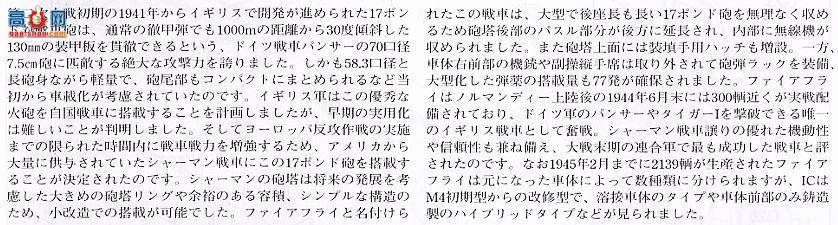 戦初期の1941年からイギリスで開発が進められた17ポン
砲は、通常の徹甲弾でも1000mの距離から30度傾斜した
130㎜の装甲板を貫徹できるという、ドイツ戦車パンサーの70口径
7.5cm砲に匹敵する絶大な攻撃力を誇りました。しかも58.3口径と
長砲身ながら軽量で、砲尾部もコンパクトにまとめられるなど当
初から車載化が考慮されていたのです。イギリス軍はこの優秀な
火砲を自国戦車に搭載することを計画しましたが、早期の実用化
は難しいことが判明しました。そしてヨーロッパ反攻作戦の実施
までの限られた時間内に戦車戦力を増強するため、アメリカから
大量に供与されていたシャーマン戦車にこの17ポンド砲を搭載す
ることが決定されたのです。シャーマンの砲塔は将来の発展を考
慮した大きめの砲塔リングや余裕のある容積、シンプルな構造の
ため、小改造での搭載が可能でした。ファイアフライと名付けら
れたこの戦車は、大型で後座長も長い17ポンド砲を無理なく収め
るため砲塔後部のバスル部分が後方に延長され、内部に無線機が
収められました。また砲塔上面には装填手用ハッチも増設。一方、
車体右前部の機銃や副操縦手席は取り外されて砲弾ラックを装備、
大型化した弾薬の搭載量も77発が確保されました。ファイアフラ
イはノルマンディー上陸後の1944年6月末には300輌近くが実戦配
備されており、ドイツ軍のパンサーやタイガーIを撃破できる唯一
のイギリス戦車として奮戦。シャーマン戦車譲りの優れた機動性
や信頼性も兼ね備え、大戦末期の連合軍で最も成功した戦車と評
されたのです。なお1945年2月までに2139輌が生産されたファイア
フライは元になった車体によって数種類に分けられますが、ICは
M4初期型からの改修型で、溶接車体のタイプや車体前部のみ鋳造
製のハイブリッドタイプなどが見られました。